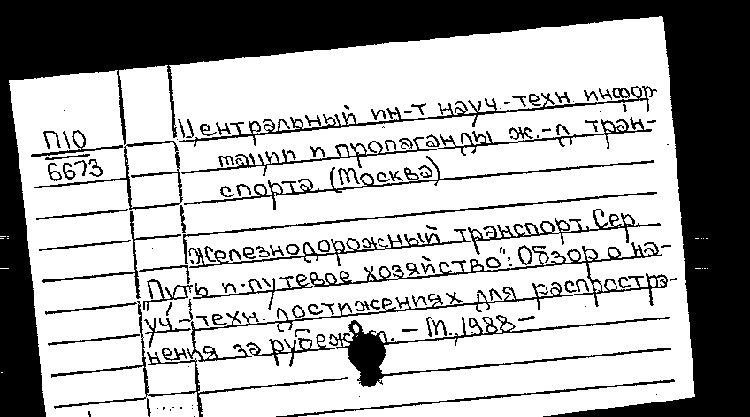 П10
6673
Центральный ин-т науч.-техн инфор-
мации и пропаганды ж.-д. тран-
спорта (Москва)
Железнодорожный транспорт. Сер.
"Путь и путевое хозяйство": Обзор о на-
уч.-техн. достижениях для распростра-
нения за рубежом. — М., 1988 —